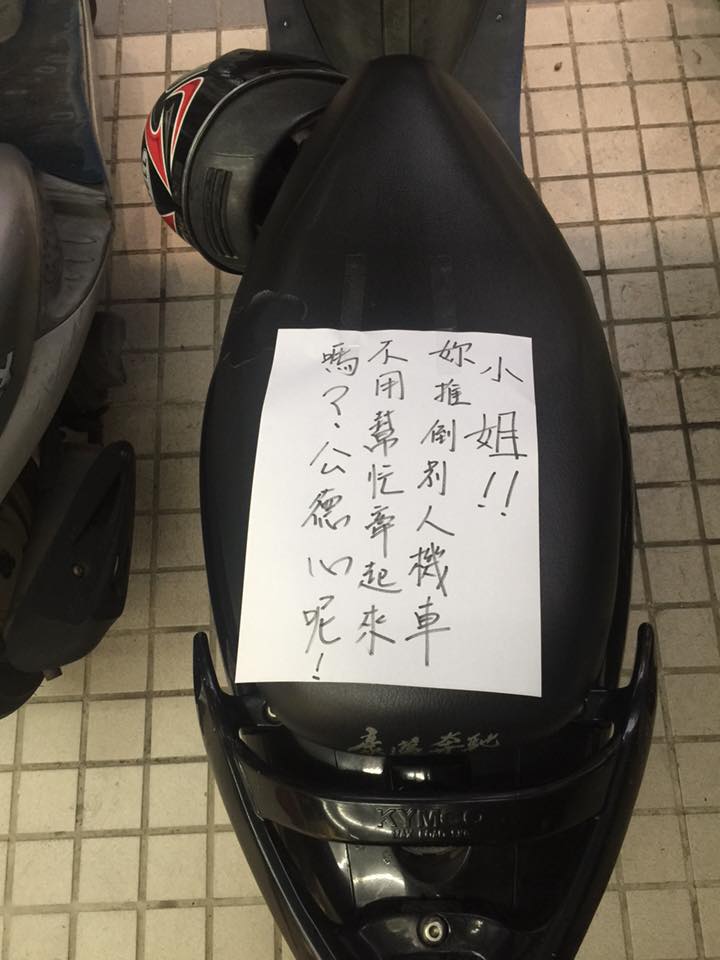 小姐!!
妳推倒別人機車
不用幫忙牽起來
嗎?.公德心呢!
豪漢奔馳
KYMCO
MAX LOAD 5KG